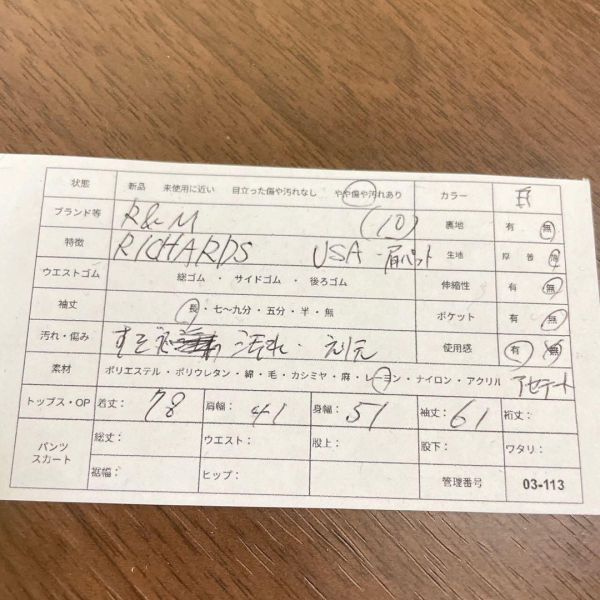 状態 新品 未使用に近い 目立った傷や汚れなし やや傷や汚れあり カラー
ブランド等 R&M (10) 裏地 有 無
特徴 RICHARDS USA・肩パット 生地 厚 普 薄
ウエストゴム 総ゴム ・ サイドゴム ・ 後ろゴム 伸縮性 有 無
袖丈 長・七〜九分・五分・半・無 ポケット 有 無
汚れ・傷み すそ に汚れ・えり元 使用感 有 無
素材 ポリエステル・ポリウレタン・綿・毛・カシミヤ・麻・レーヨン・ナイロン・アクリル アセテート
トップス・OP 着丈: 78 肩幅: 41 身幅: 51 袖丈: 61 裄丈:
パンツ スカート 総丈: ウエスト: 股上: 股下: ワタリ:
裾幅: ヒップ: 管理番号 03-113